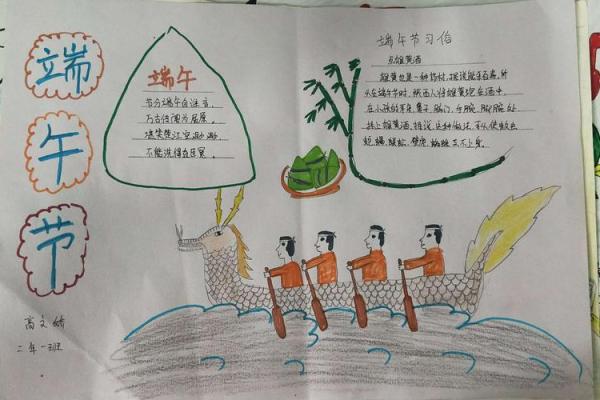 端午节
端午
节分端午自谁言,
万古传闻为屈原。
堪笑楚江空渺渺,
不能洗得直臣冤。
端午节习俗
点雄黄酒
雄黄也是一种药材,据说能杀百毒,所
以在端午节时,陕西人将雄黄泡在酒中,
在小孩的耳朵,鼻子,脑门,手腕,脚腕处
抹上雄黄酒,据说,这种做法,可以使蚊虫
蛇,蝎,蜈蚣,壁虎,蜘蛛不上身。
高文娇
二年一班